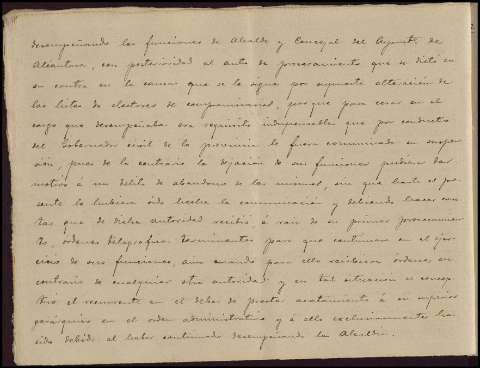 desempeñando las funciones de Alcalde y Concejal del Ayunt.º de
Alcántara, con posterioridad al auto de procesamiento que se dictó en
su contra en la causa que se le sigue por supuesta alteración de
las listas de electores de compromisarios, porque para cesar en el
cargo que desempeñaba era requisito indispensable que por conducto
del Gobernador civil de la provincia le fuera comunicada su suspen-
sión, pues de lo contrario la dejación de sus funciones pudiera dar
motivo á un delito de abandono de las mismas, sin que hasta el pre-
sente le hubiera sido hecha la comunicación y debiendo hacer cons-
tar que de dicha autoridad recibió, á raiz de su primer procesamien-
to, órdenes telegráficas terminantes para que continuara en el ejer-
cicio de sus funciones, aun cuando para ello recibiera órdenes en
contrario de cualquier otra autoridad; y en tal situacion se encon-
tró el recurrente en el deber de prestar acatamiento á su superior
gerárquico en el orden administrativo y á ello exclusivamente ha
sido debido el haber continuado desempeñando la Alcaldia.